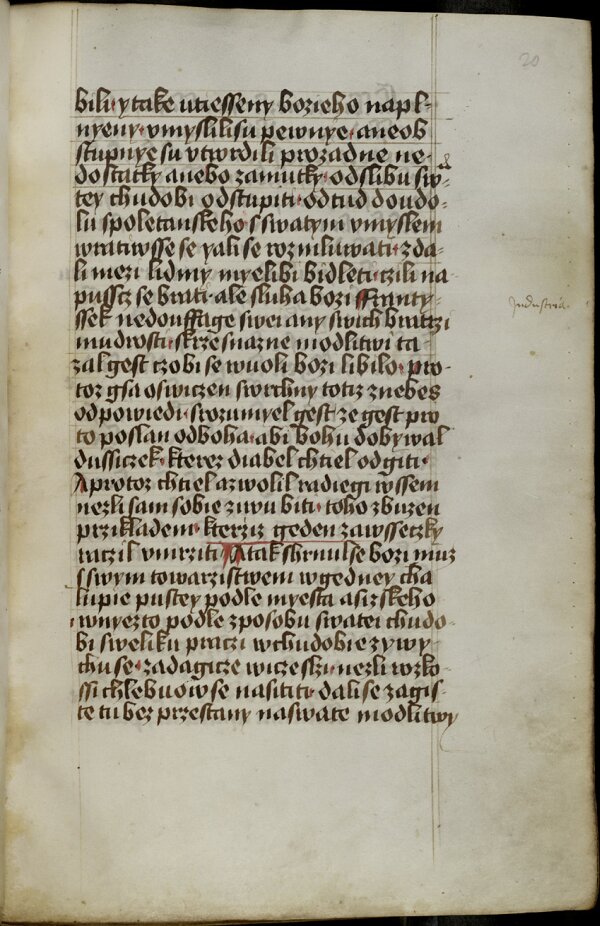 20
bili· ytake utiesseny bozieho napl-
nyeny· vmyslilisu pewnye· aneob
stupnye su vtwrdili prozadne ne-
dostatky anebo zamutky· odslibu swa-
tey chudobi odstupiti· odtud doudo-
lu spoletanskeho sswatym vmyslem
wratiwsse se yali se rozmluwati· zda-
li mezi lidmy myelibi bidleti· czili na
pusscz se brati· ale sluha bozi ffranty-
ssek nedouffage swei any swich bratrzi
mudrosti· skrze snazne modlitwi ta-
zal gest czobi se wuoli bozi libilo· pro-
toz gsa oswiczen swrchny totiz znebes
odpowiedi· srozumyel gest ze gest pro
to poslan odboha· abi bohu dobywal
dussiczek· kterez diabel chtiel odgiti·
A protoz chtiel azwolil radiegi wssem
nezli sam sobie ziwu biti· toho zbuzen
przikladem· kterziz geden zawsseczky
raczil vmrziti A tak shrnul se bozi muz
sswym towarzistwem wgedney cha
lupie pustey podle myesta asizskeho
wnyezto podle zposobu swatei chudo-
bi sweliku praczi wchudobie zywy
chu se· zadagicze wiczeslzi· nezli rozko-
ssi chlebuow se nasititi· dali se zagis-
te tu bez przestany naswate modlitwy
Industria.